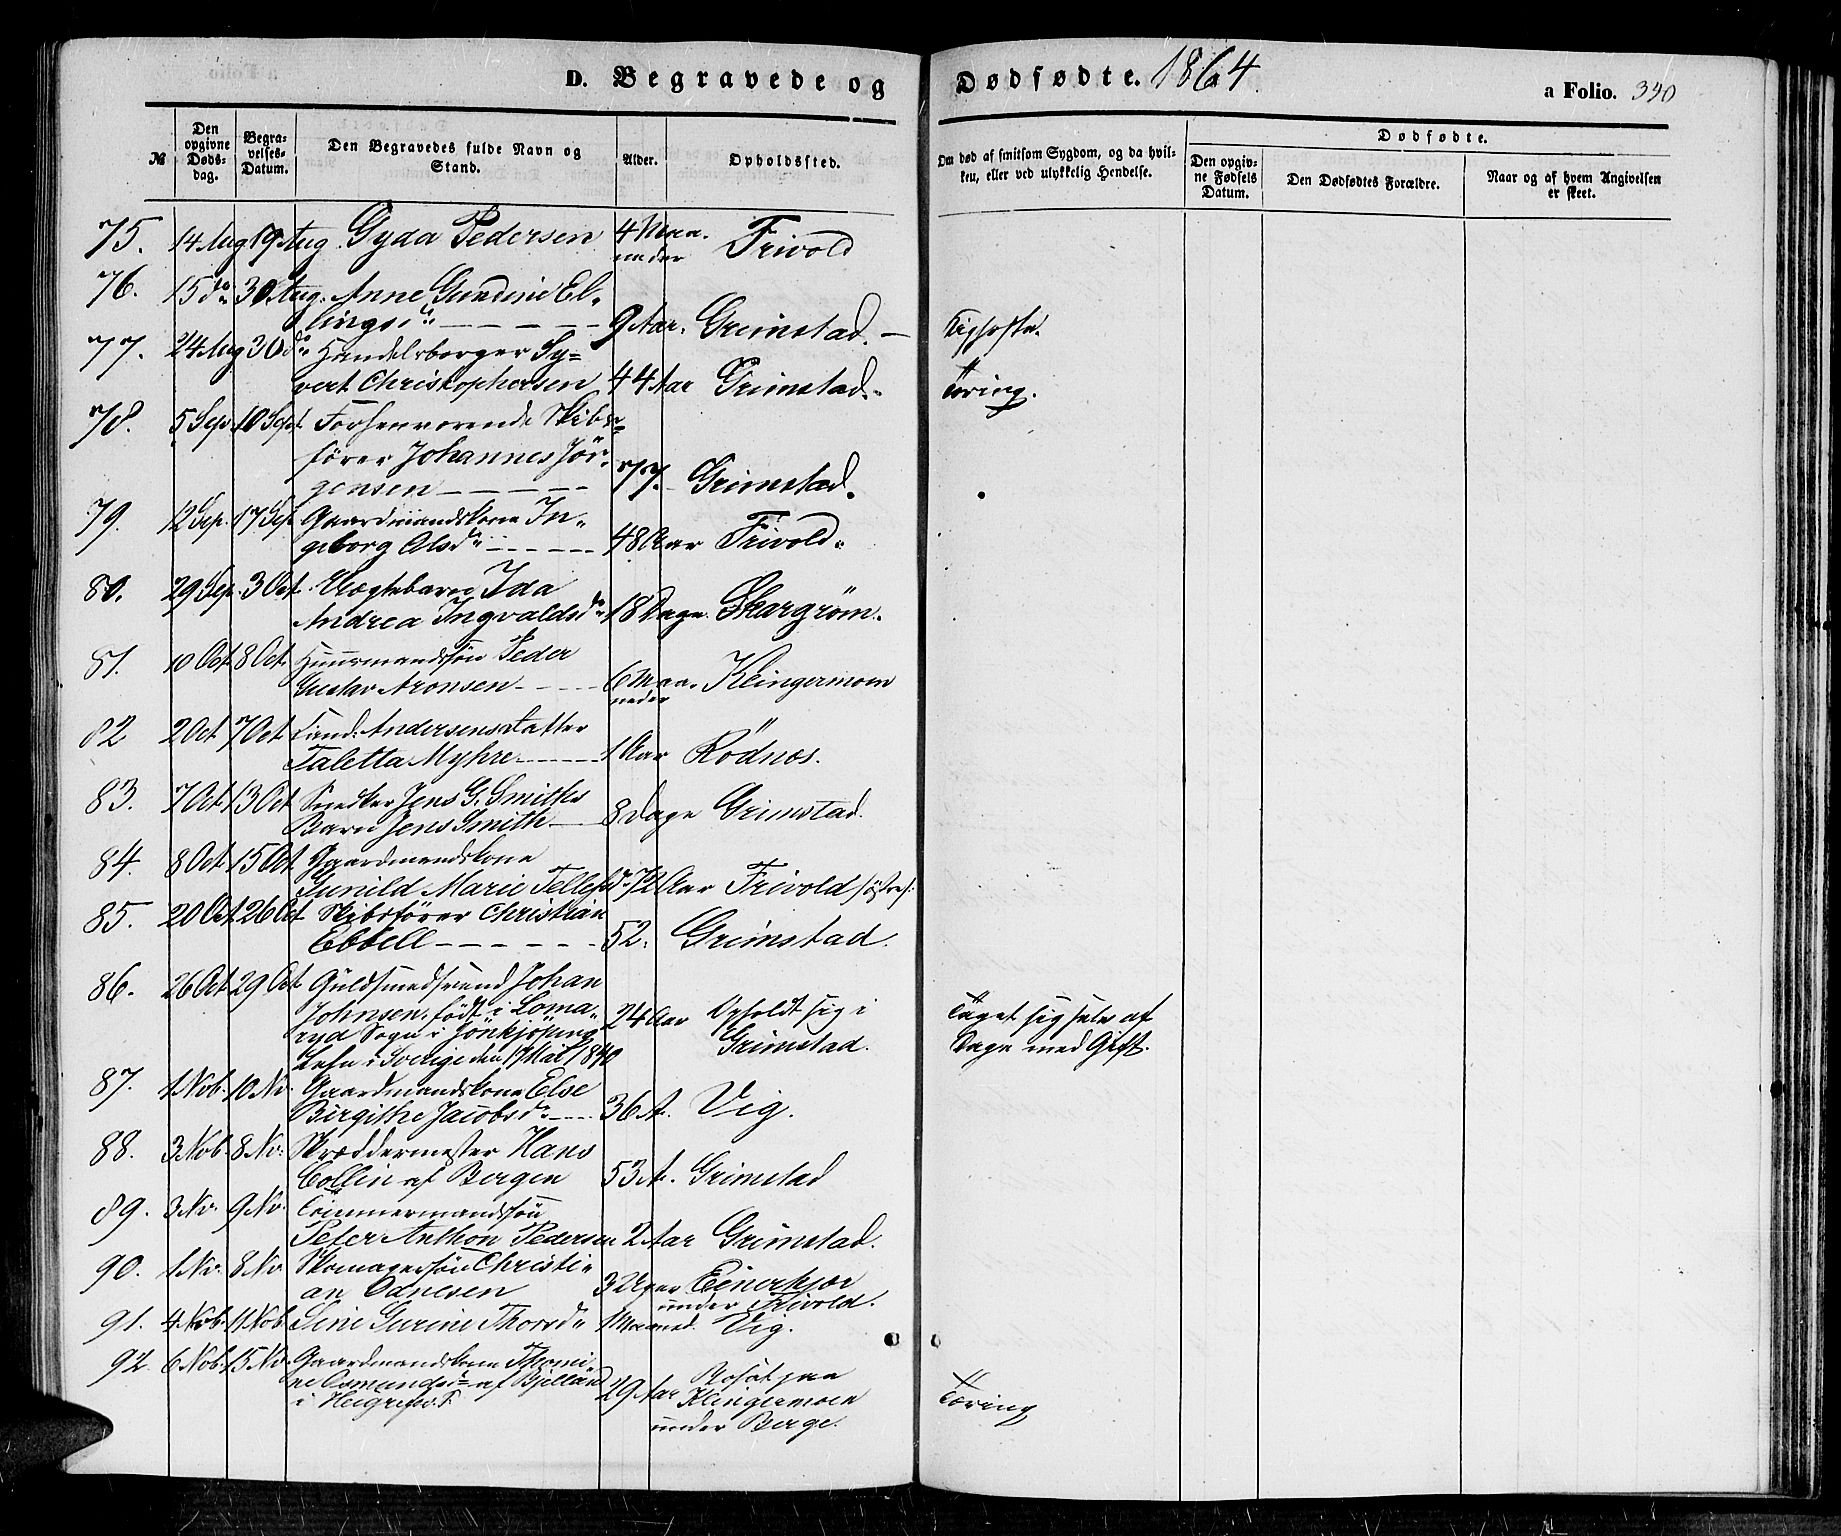 D. Begravede og Dødfødte. 1864
a Folio. 340
№ Den opgivne Døds-dag. Begra-velses-Datum. Den Begravedes fulde Navn og Stand. Alder. Opholdssted.
Om død af smitsom Sygdom, og da hvil-ken, eller ved ulykkelig Hendelse.
Dødfødte.
Den opgiv-ne Fødsels Datum. Den Dødfødtes Forældre. Naar og af hvem Angivelsen er skeet.
75. 14 Aug 19 Aug. Gyda Pedersen 4 Maa-neder Frivold
76. 15 do 30 Aug. Anne Gundine El-
lingsd. 9 Aar. Grimstad. Kighoste.
77. 24 Aug 30 do Handelsborger Sy-
vert Christophersen 44 Aar Grimstad. Tæring.
78. 5 Sep. 10 Sept Forhenværende Skibs-
fører Johannes Jör-
gensen 77. Grimstad.
79. 12 Sep. 17 Sep Gaardmandskone In-
geborg Olsd. 48 Aar Frivold.
80. 29 Sep. 3 Oct. Uægtebarn Ida
Andrea Ingvaldsd. 18 Dage. Skargrøm.
81. 10 Oct. 8 Oct. Huusmandssön Peder
Gustav Aronsen 6 Maa-neder Klingermoen
82 2 Oct 7 Oct Andersens Datter
Taletta Myhre 1 Aar Rödnes.
83. 7 Oct. 13 Oct Snedker Jens G. Smiths
Barn Jens Smith 8 Dage Grimstad.
84. 8 Oct. 15 Oct Gaardmandskone
Gunild Marie Tellefsd. 72 Aar Frivold
85. 20 Oct. 26 Oct Skibsfører Christian
Ebbell 52. Grimstad.
86. 26 Oct 29 Oct. Guldsmedsvend Johan
Johnsen, født i Loma-
ryd Sogn i Jönkjöping
Lehn i Sverige den 17 Mai 1840 24 Aar Opholdt sig i
Grimstad. Taget sig selv af
Dage med Gift.
87. 1 Nob. 10 No. Gaardmandskone Else
Birgithe Jacobsd. 36 A. Vig.
88. 3 Nob. 8 No: Skræddermester Hans
Collin af Bergen 53 A. Grimstad
89. 3 No. 9 No. Tömmermandssön
Peter Anthon Pedersen 2 Aar Grimstad.
90. 1 No: 8 No. Skomagersön Christi-
an Odnesen 3 Uger Eenerkjær
under Frivold.
91. 4 Nob. 11 Nob. Sine Surine Thorsd. 1 Maaned. Vig.
92. 6 Nob. 15 No. Gaardmandskone Thomi-
ne Osmundsd. af Bjelland
i 29 Aar Rosöt paa
Klingermoen
under Berge. Tæring